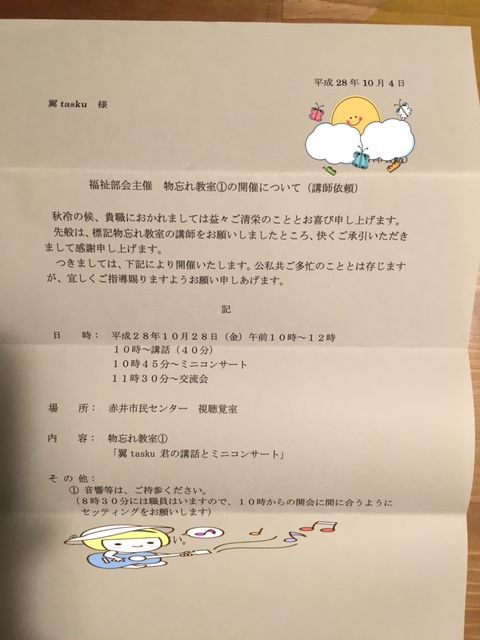 平成28年10月4日
翼tasku　様
福祉部会主催　物忘れ教室①の開催について（講師依頼）
秋冷の候、貴職におかれましては益々ご清栄のこととお喜び申し上げます。
先般は、標記物忘れ教室の講師をお願いしましたところ、快くご承引いただき
まして感謝申し上げます。
つきましては、下記により開催いたします。公私共ご多忙のこととは存じます
が、宜しくご指導賜りますようお願い申しあげます。
記
日　時：　平成２８年１０月２８日（金）午前１０時～１２時
１０時～講話（４０分）
１０時４５分～ミニコンサート
１１時３０分～交流会
場　所：　赤井市民センター　視聴覚室
内　容：　物忘れ教室①
「翼tasku 君の講話とミニコンサート」
そ の 他：
① 音響等は、ご持参ください。
（８時３０分には職員はいますので、１０時からの開会に間に合うように
セッティングをお願いします）
い。